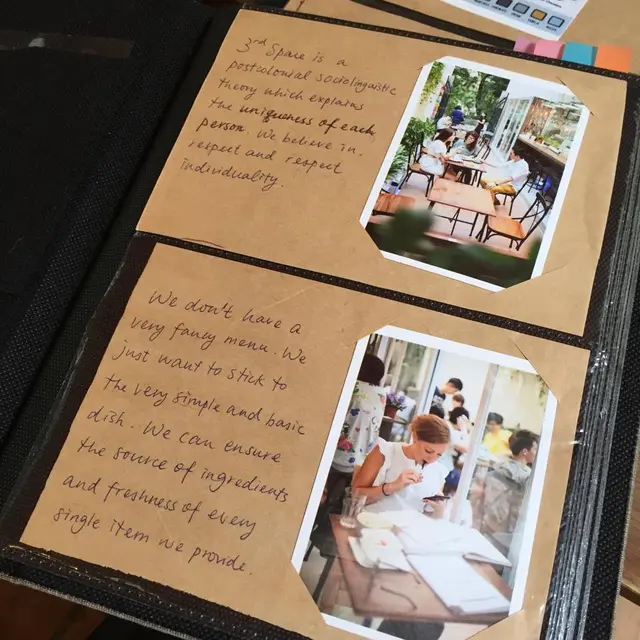 3rd Space is a
postcolonial sociolinguistic
theory which explains
the uniqueness of each
person. We believe in.
respect and respect
individuality.
We don't have a
very fancy menu. We
just want to stick to
the very simple and basic
dish. We can ensure
the source of ingredients
and freshness of every
single item we provide.